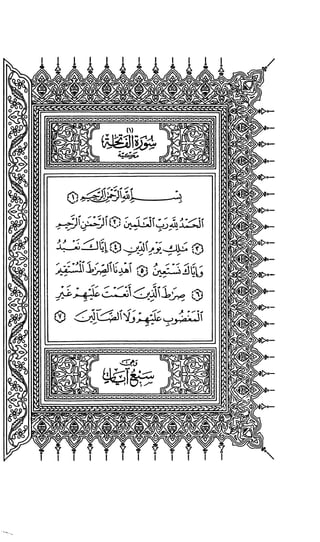 (١)
سُورَةُ الفَاتِحَةِ
مَكِّيَّة
بِسْمِ اللَّهِ الرَّحْمَٰنِ الرَّحِيمِ ١
الْحَمْدُ لِلَّهِ رَبِّ الْعَٰلَمِينَ ٢ الرَّحْمَٰنِ الرَّحِيمِ
٣ مَٰلِكِ يَوْمِ الدِّينِ ٤ إِيَّاكَ نَعْبُدُ
وَإِيَّاكَ نَسْتَعِينُ ٥ اهْدِنَا الصِّرَٰطَ الْمُسْتَقِيمَ
٦ صِرَٰطَ الَّذِينَ أَنْعَمْتَ عَلَيْهِمْ غَيْرِ
الْمَغْضُوبِ عَلَيْهِمْ وَلَا الضَّالِّينَ ٧
وهي
سَبْعُ آيَات